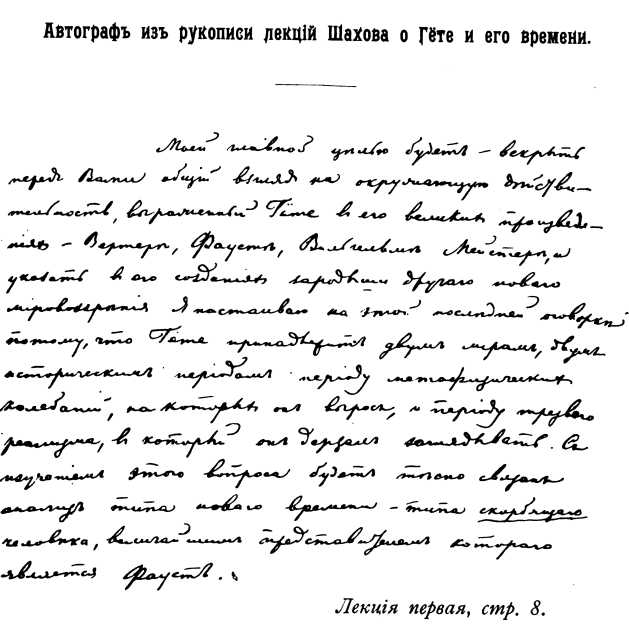 Автографъ изъ рукописи лекцій Шахова о Гёте и его времени.
Моей главной цѣлью будетъ – вскрыть
передъ Вами общій взглядъ на окружающую дѣйстви-
тельность, выраженный Гёте въ его великихъ произведе-
ніяхъ – Вертеръ, Фаустъ, Вильгельмъ Мейстеръ, и
указать въ его созданіяхъ зародыши другаго новаго
міровоззрѣнія Я настаиваю на этой послѣдней оговоркѣ
потому, что Гёте принадлежитъ двумъ мірамъ, двумъ
историческимъ періодамъ періоду метафизическихъ
колебаній, на которыхъ онъ выросъ, и періоду трезваго
реализма, въ который онъ дерзалъ заглядывать. Съ
изученіемъ этого вопроса будетъ тѣсно связанъ
анализъ типа новаго времени – типа скорбящаго
человѣка, величайшимъ представителемъ котораго
является Фаустъ.
Лекція первая, стр. 8.